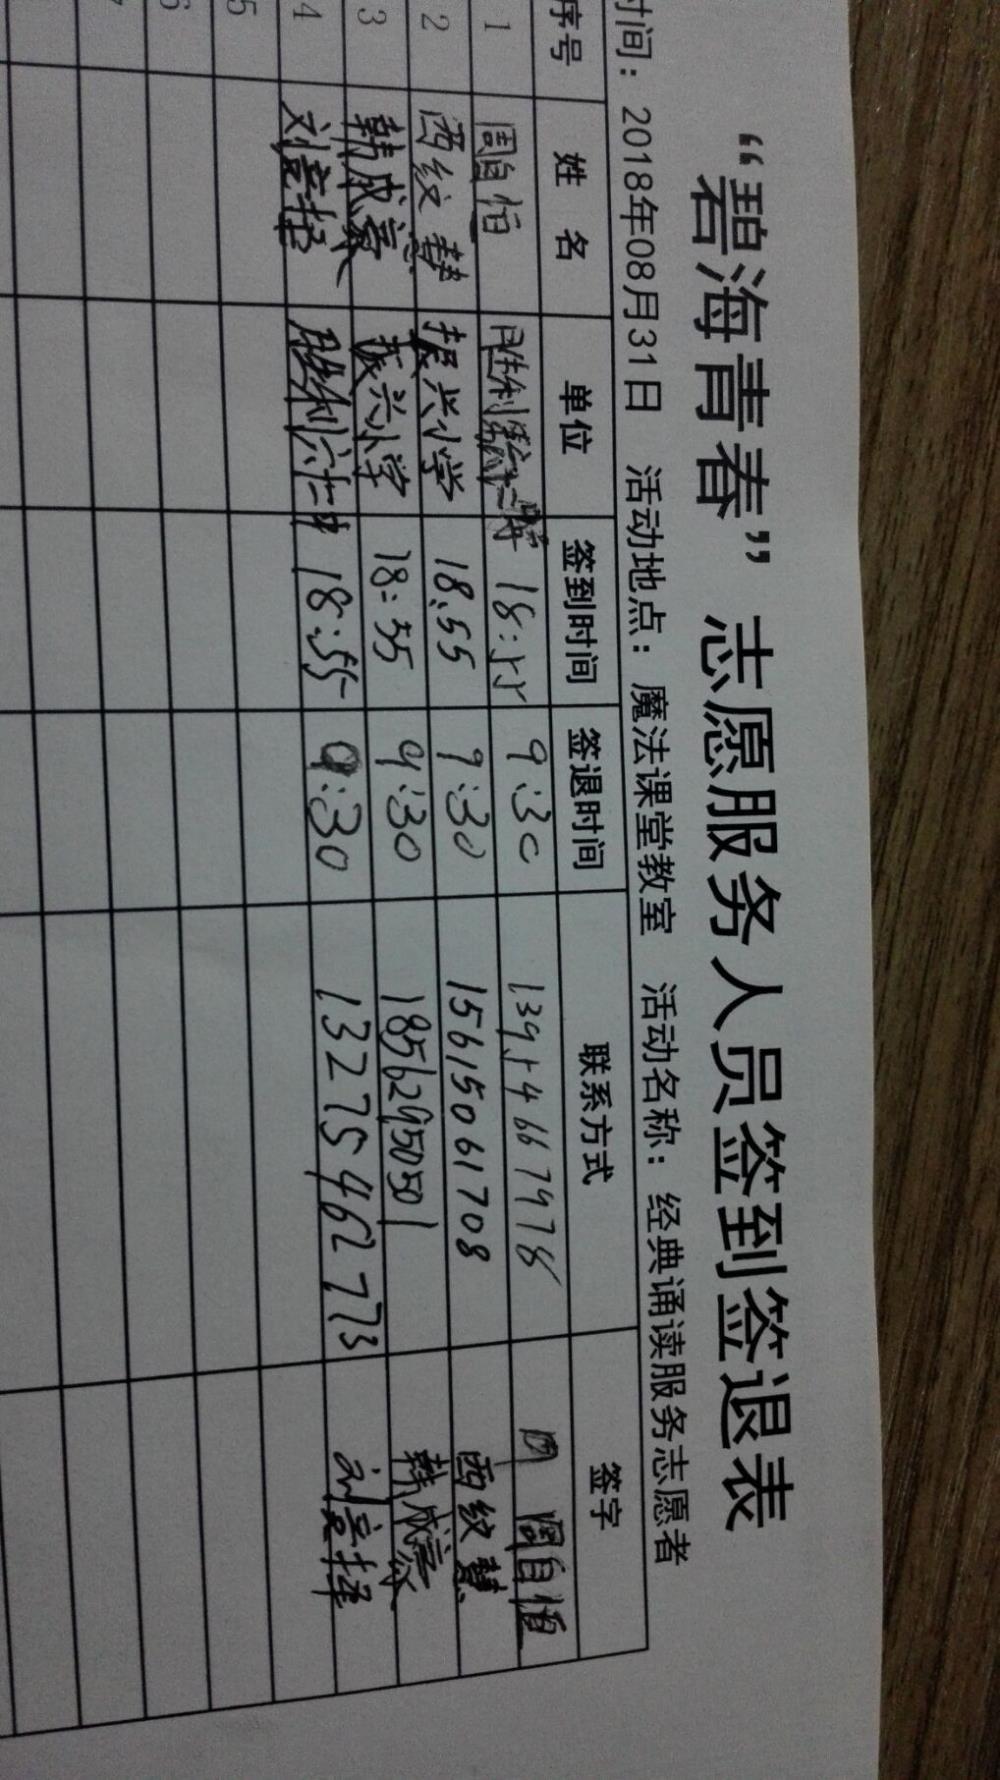 “碧海青春”志愿服务人员签到签退表
时间：2018年08月31日 活动地点：魔法课堂教室 活动名称：经典诵读服务志愿者
序号 姓名 单位 签到时间 签退时间 联系方式 签字
1 周自恒 胜利 18:55 9:30 13954667978 周自恒
2 西纹慧 振兴小学 18:55 9:30 15615061708 西纹慧
3 韩成 振兴小学 18:55 9:30 18562950501 韩成
4 刘 择 胜利六十二中 18:55 9:30 13275462773 刘 择
5
6
7